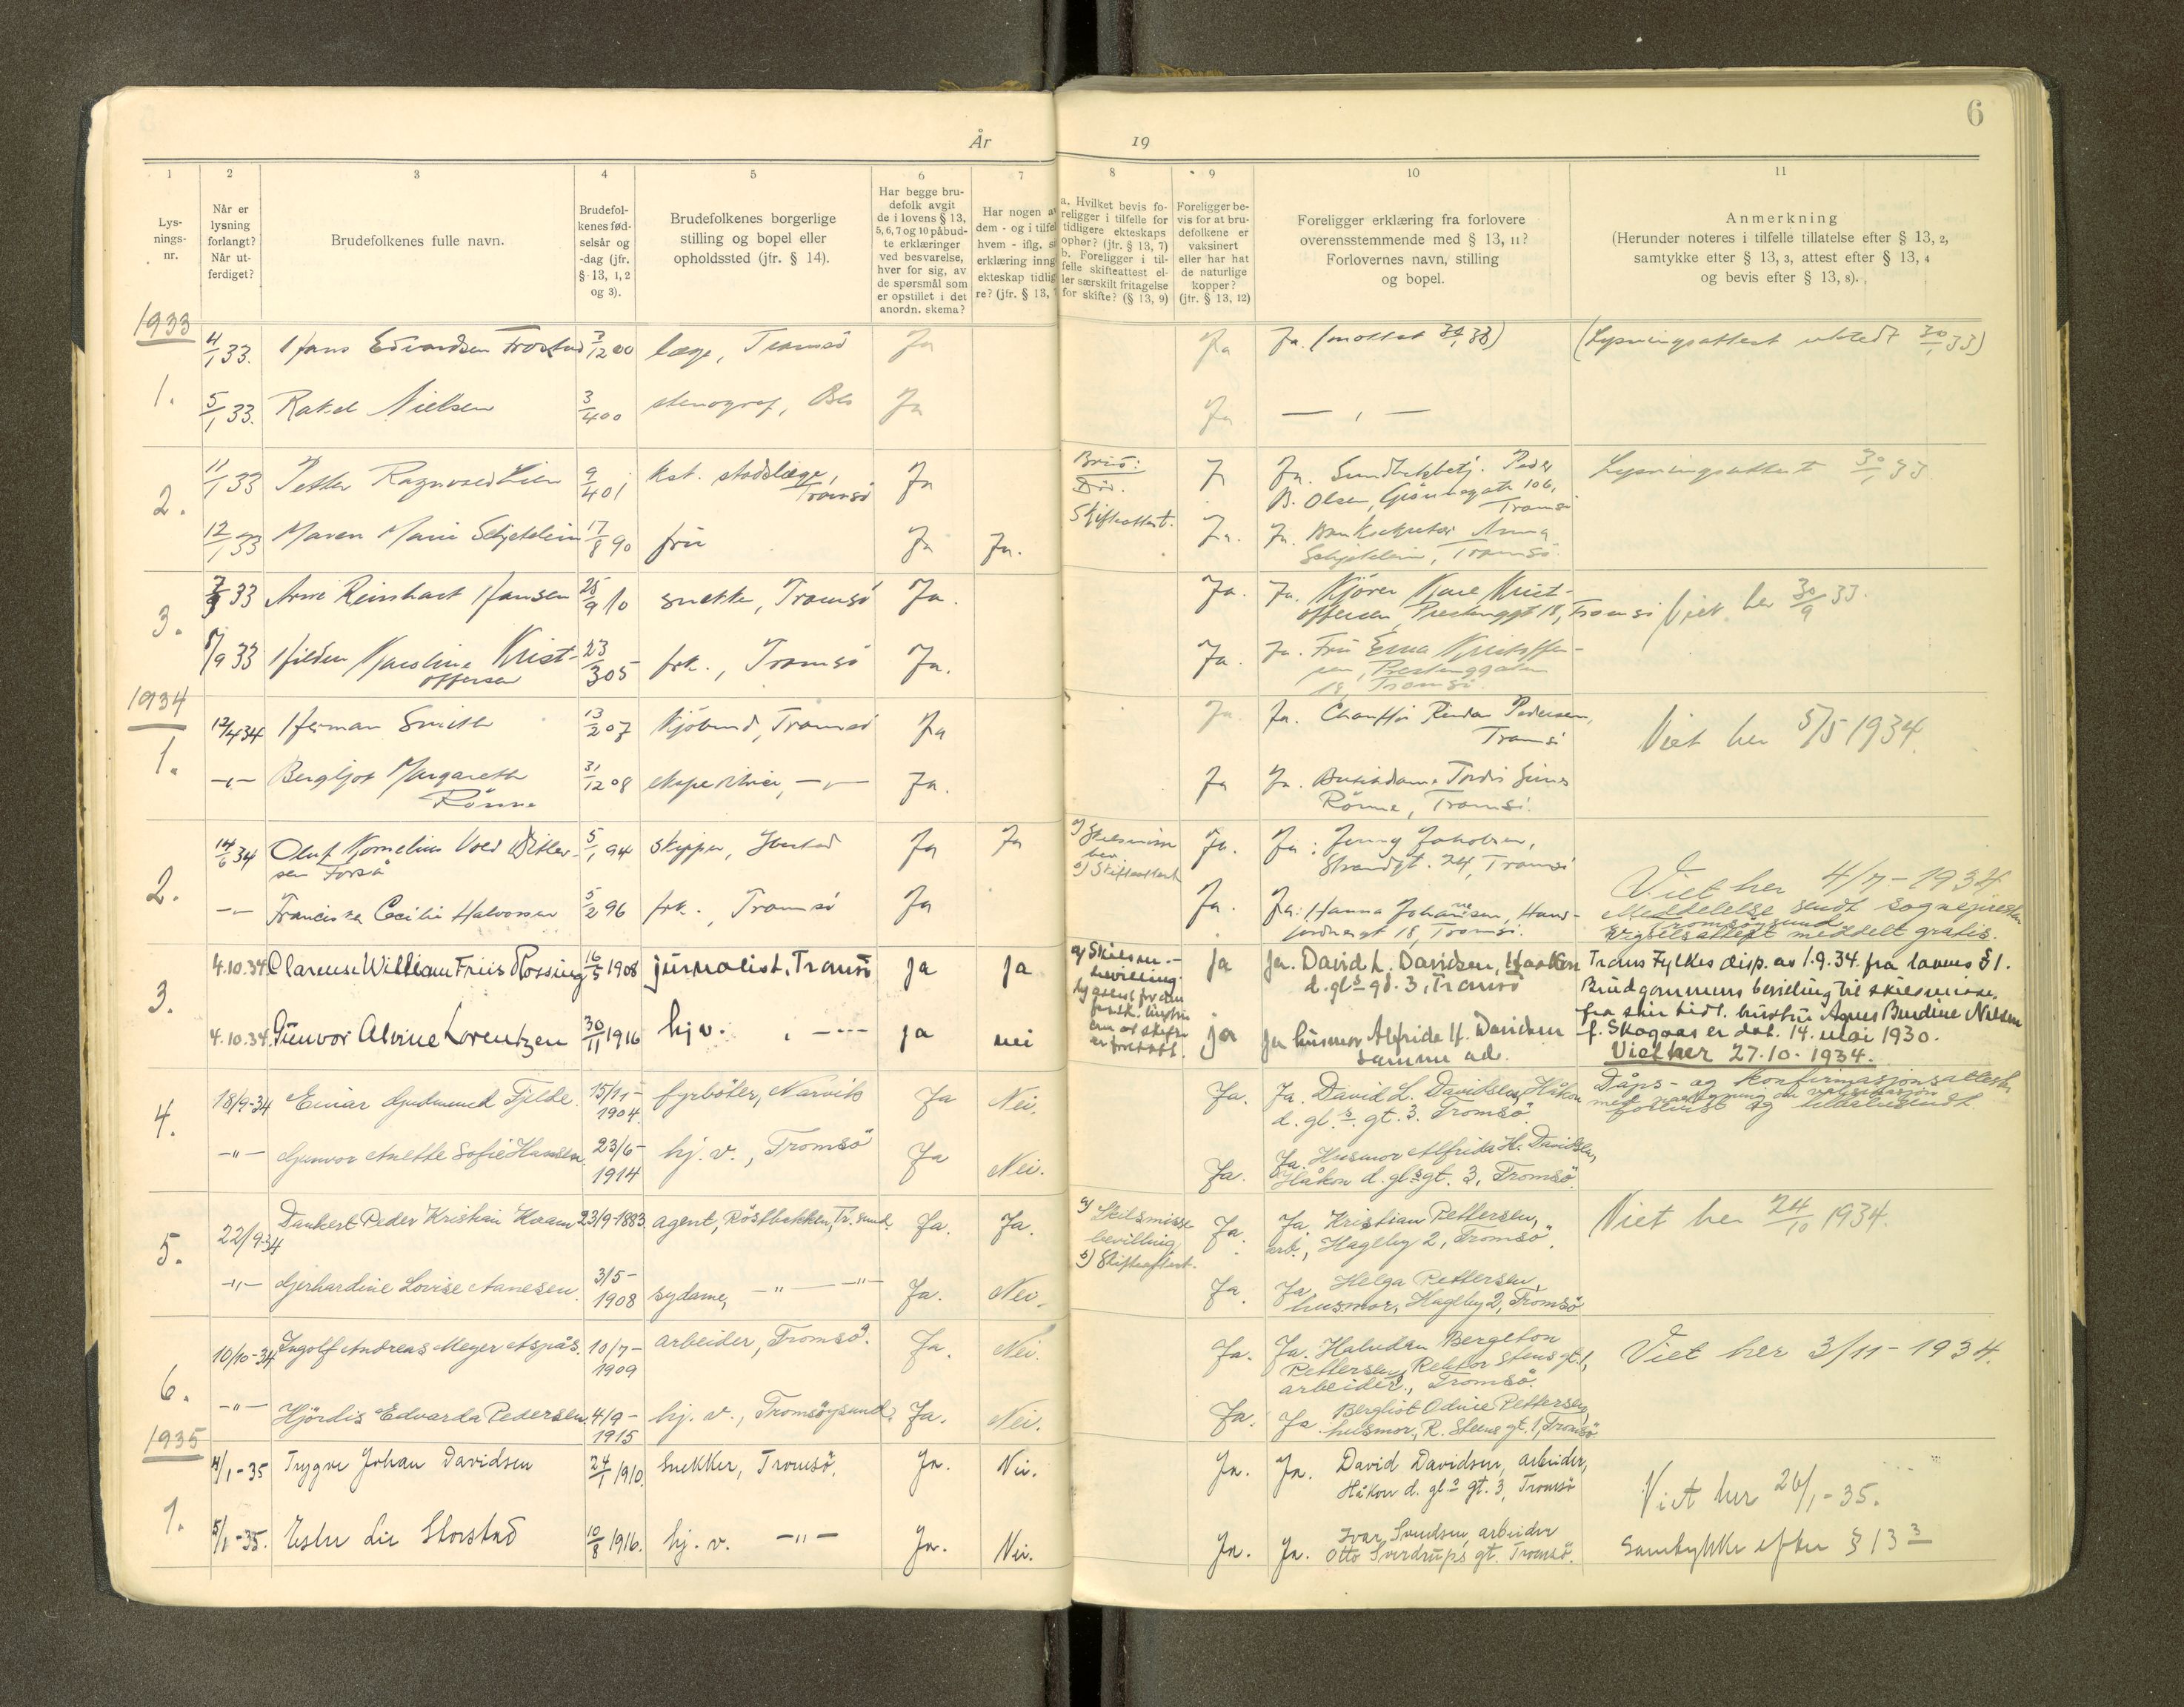 6
År 19
1 2 3 4 5 6 7 8 9 10 11
Lys-
nings-
nr.
Når er
lysning
forlangt?
Når ut-
ferdiget?
Brudefolkenes fulle navn.
Brudefol-
kenes fød-
selsår og
-dag (jfr.
§ 13, 1, 2
og 3).
Brudefolkenes borgerlige
stilling og bopel eller
opholdssted (jfr. § 14).
Har begge bru-
defolk avgit
de i lovens § 13,
5, 6, 7 og 10 påbud-
te erklæringer
ved besvarelse,
hver for sig, av
de spørsmål som
er opstillet i det
anordn. skema?
Har nogen a
dem - og i tilfel
hvem - iflg. s
erklæring inng
ekteskap tidlig
re? (jfr. § 13,
a. Hvilket bevis fo-
religger i tilfelle for
tidligere ekteskaps
ophør? (jtr. § 13, 7)
b. Foreligger i til-
felle skifteattest el-
ler særskilt fritagelse
for skifte? (§ 13, 9)
Foreligger be-
vis for at bru-
defolkene er
vaksinert
eller har hat
de naturlige
kopper?
(jtr. § 13, 12)
Foreligger erklæring fra forlovere
overensstemmende med § 13, 11?
Forlovernes navn, stilling
og bopel.
Anmerkning
(Herunder noteres i tilfelle tillatelse efter § 13, 2,
samtykke etter § 13, 3, attest efter § 13, 4
og bevis efter § 13, 8).
1933
1.
4/1 33. Hans Edvardsen Frostad 3/12 00 læge, Tromsö Ja Ja Ja. (mottat 30/1 33) (Lysningsattest utstedt 30/1 33)
5/1 33. Rakel Nielsen 3/4 00 stenograf, Ja Ja — " —
2.
11/1 33 Petter Ragnvald Lien 9/4 01 kst. stadslæge, Tromsö Ja
Brud:
Död.
Skifteattest.
J Ja. Peder
B. Olsen, Grönnegate 106,
Tromsö
Lysningsattest 30/1 33
12/1 33 Maren Marie Schjelderup 17/8 90 frü Ja Ja. Ja. Ja. Anna
Tromsö.
3.
7/9 33 Arne Reinhart Hansen 25/9 10 snekker, Tromsö Ja. Ja. Ja. Kjören Kåre Krist-
offersen, Prestenggt 18, Tromsö Viet her 30/9 33.
8/9 33 Hilda Karoline Krist-
offersen 23/3 05 frk., Tromsö Ja. Ja. Ja. Frü Erna Kristoffer-
sen, Prestenggaten
18, Tromsö.
1934
1.
12/4 34 Herman Smith 13/2 07 Kjöbmd, Tromsö Ja Ja Ja. Chaufför Pedersen,
Tromsö
Viet her 5/5 1934.
—"— Bergljot Margareth
Rönne 31/12 08 ekspeditrice, —"— Ja. Ja Ja. Tordis
Rönne, Tromsö.
2.
14/6 34 Oluf Kornelius Ditlev-
sen Forså 5/1 94 skipper, Ibestad Ja Ja
a) Skilsmisse
bev.
b) Skifteattest
Ja. Ja: Jenny Jakobsen,
Strandgt. 24, Tromsö
Viet her 4/7-1934
Meddelelse sendt sogneprest
Tromsöysund
Vigselsattest meddelt gratis.
—"— Franciska Cecilie Halvorsen 5/2 96 frk., Tromsö Ja Ja. Ja: Hanna Johansen,
18, Tromsö.
3.
4.10.34. Clarense William Friis Rossing 16/5 1908 jürnalist, Tromsö ja ja
a) Skilsm.-
bevilling.
ja ja. David L. Davidsen, Haakon
d. gl.s gt. 3, Tromsö
Troms Fylkes disp. av 1.9.34. fra lovens § 1.
Brudgommens bevilling til skilsmisse
fra sin tidl. hüstrü Agnes Bendine Nilsen
f. Skogaas er dat. 14. mai 1930.
Viet her 27.10.1934.
4.10.34. Günvor Alvine Lorentzen 30/11 1916 hj. v. , —"— ja nei ja ja hüsmor Alfrida H. Davidsen
samme ad.
4.
18/9-34 Einar Gudmund Fjelde. 15/11-
1904. fyrböter, Narvik Ja Nei. Ja. Ja. David L. Davidsen, Håkon
d. gl.s. gt. 3. Tromsö
Dåps- og konfirmasjonsattester
med påtegning om vaksinasjon
forevist og tilbakesendt.
—"— Gunvor Anette Sofie Hansen. 23/6-
1914 hj. v., Tromsö Ja Nei. Ja. Ja. Husmor Alfrida H. Davidsen,
Håkon d. gl.s gt. 3, Tromsö.
5.
22/9-34 Dankert Peder Kristian Kraam 23/9-1883 agent, Röstbakken, Tr. sund. Ja. Ja.
a) Skilsmisse
bevilling
b) Skifteattest.
Ja. Ja. Kristian Pettersen,
arb., Haglby 2, Tromsö.
Viet her 24/10 1934.
—"— Gerhardine Lovise Aanesen. 3/5-
1908 sydame, —"— —"— Ja. Nei. Ja. Ja Helga Pettersen,
husmor, Haglby 2, Tromsö
6.
10/10-34 Ingolf Andreas Meyer Aspås. 10/7-
1909 arbeider, Tromsö. Ja. Nei. Ja. Ja. Halvdan Bergeton
Pettersen, Rektor Steens gt. 1,
arbeider., Tromsö.
Viet her 3/11-1934.
—"— Hjördis Edvarda Pedersen. 4/9-
1915 hj. v., Tromsöysund. Ja. Nei. Ja. Ja. Bergliot Odine Pettersen,
husmor, R. Steens gt. 1, Tromsö
1935
1.
4/1-35 Trygve Johan Davidsen 24/1 1910. Snekker, Tromsö. Ja. Nei. Ja. Ja. David Davidsen, arbeider,
Håkon d. gl.s gt. 3, Tromsö
Viet her 26/1-35.
5/1-35. Ester Lie Storstad 10/8 1916. hj. v. —"— Ja. Nei. Ja. Ja. Ivar Svendsen, arbeider
Otto Sverdrups gt. Tromsö.
Samtykke efter § 13 3